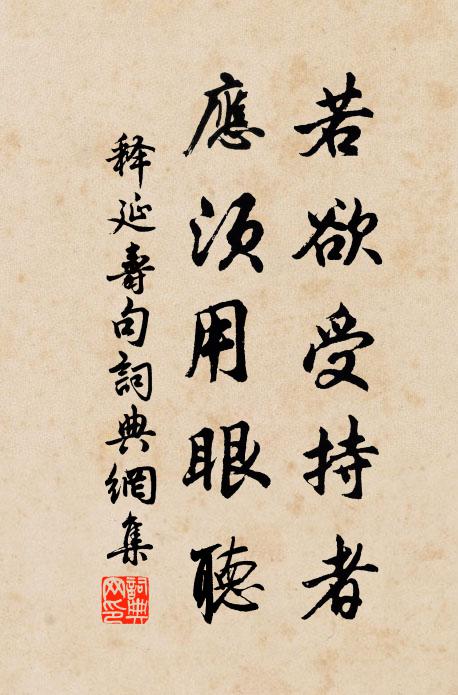 若欲受持者
應須用眼聽
释延壽句詞典網集
詞典网印